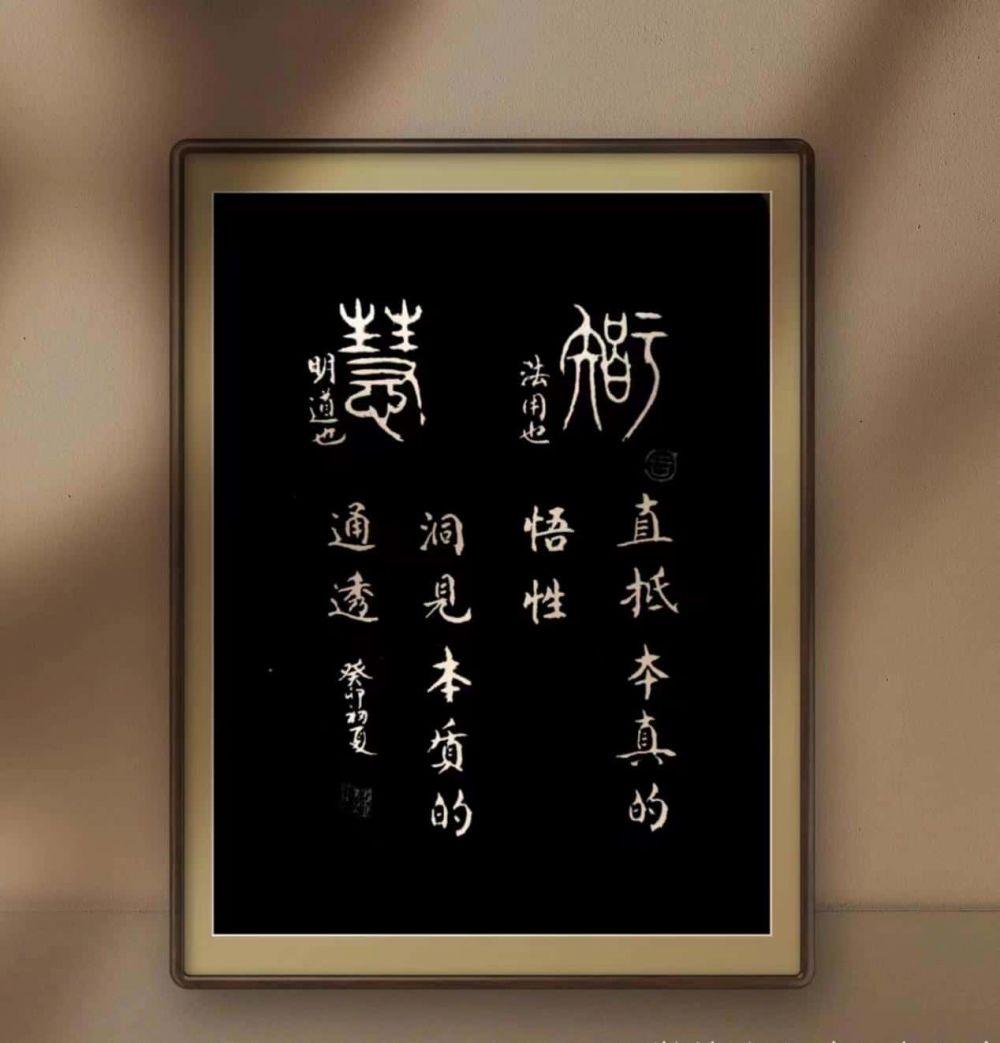 智
法用也
直抵本真的
悟性
慧
明道也
洞見本质的
通透
癸卯初夏